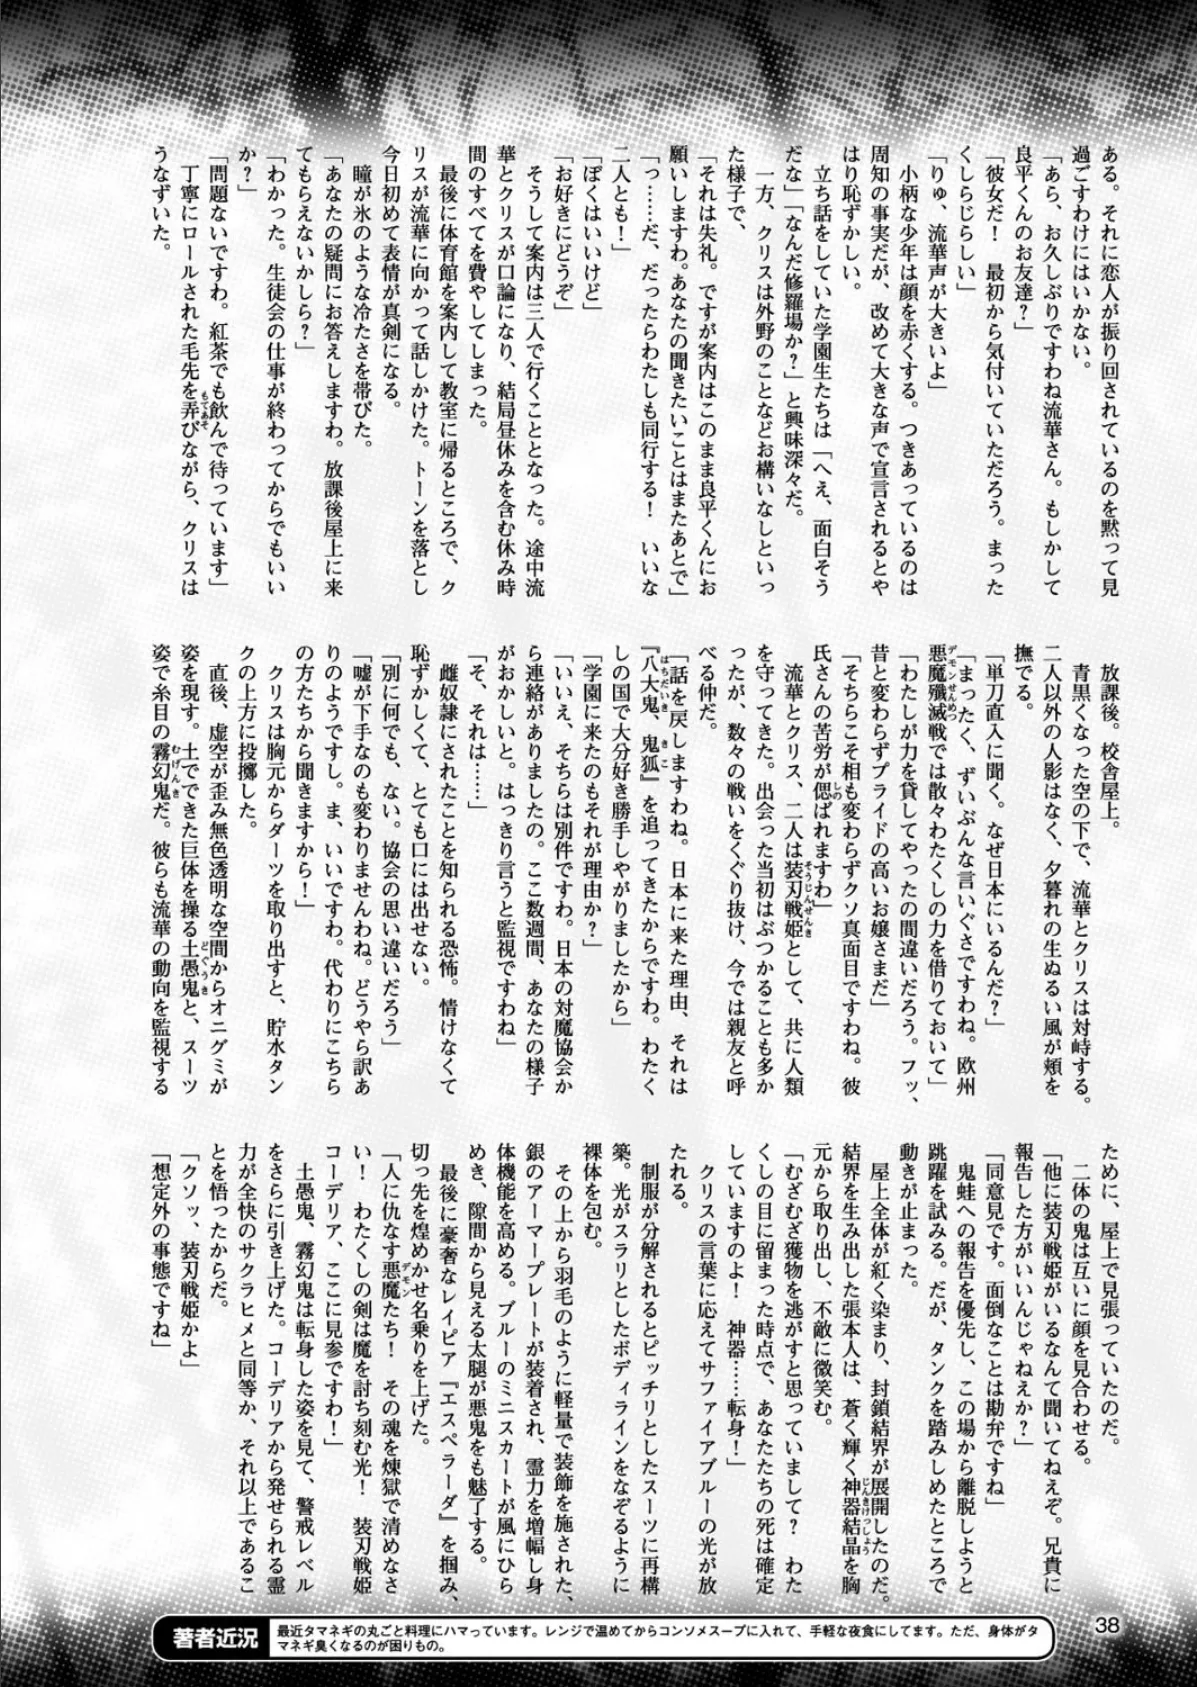 ある。それに恋人が振り回されているのを黙って見
過ごすわけにはいかない。
「あら、お久しぶりですわね流華さん。もしかして
良平くんのお友達？」
「彼女だ！　最初から気付いていただろう。まった
くしらじらしい」
「りゅ、流華声が大きいよ」
小柄な少年は顔を赤くする。つきあっているのは
周知の事実だが、改めて大きな声で宣言されるとや
はり恥ずかしい。
立ち話をしていた学園生たちは「へえ、面白そう
だな」「なんだ修羅場か？」と興味深々だ。
一方、クリスは外野のことなどお構いなしといっ
た様子で、
「それは失礼。ですが案内はこのまま良平くんにお
願いしますわ。あなたの聞きたいことはまたあとで」
「っ……だ、だったらわたしも同行する！　いいな
二人とも！」
「ぼくはいいけど」
「お好きにどうぞ」
そうして案内は三人で行くこととなった。途中流
華とクリスが口論になり、結局昼休みを含む休み時
間のすべてを費やしてしまった。
最後に体育館を案内して教室に帰るところで、ク
リスが流華に向かって話しかけた。トーンを落とし
今日初めて表情が真剣になる。
瞳が氷のような冷たさを帯びた。
「あなたの疑問にお答えしますわ。放課後屋上に来
てもらえないかしら？」
「わかった。生徒会の仕事が終わってからでもいい
か？」
「問題ないですわ。紅茶でも飲んで待っています」
丁寧にロールされた毛先を弄びながら、クリスは
うなずいた。
放課後。校舎屋上。
青黒くなった空の下で、流華とクリスは対峙する。
二人以外の人影はなく、夕暮れの生ぬるい風が頬を
撫でる。
「単刀直入に聞く。なぜ日本にいるんだ？」
「まったく、ずいぶんな言いぐさですわね。欧州
悪魔殲滅戦では散々わたくしの力を借りておいて」
「わたしが力を貸してやったの間違いだろう。フッ、
昔と変わらずプライドの高いお嬢さまだ」
「そちらこそ相も変わらずクソ真面目ですわね。彼
氏さんの苦労が偲ばれますわ」
流華とクリス、二人は装刃戦姫として、共に人類
を守ってきた。出会った当初はぶつかることも多か
ったが、数々の戦いをくぐり抜け、今では親友と呼
べる仲だ。
「話を戻しますわね。日本に来た理由、それは
『八大鬼、鬼狐』を追ってきたからですわ。わたく
しの国で大分好き勝手しやがりましたから」
「学園に来たのもそれが理由か？」
「いいえ、そちらは別件ですわ。日本の対魔協会か
ら連絡がありましたの。ここ数週間、あなたの様子
がおかしいと。はっきり言うと監視ですわね」
「そ、それは……」
雌奴隷にされたことを知られる恐怖。情けなくて
恥ずかしくて、とても口には出せない。
「別に何でも、ない。協会の思い違いだろう」
「嘘が下手なのも変わりませんわね。どうやら訳あ
りのようですし。ま、いいですわ。代わりにこちら
の方たちから聞きますから！」
クリスは胸元からダーツを取り出すと、貯水タン
クの上方に投擲した。
直後、虚空が歪み無色透明な空間からオニグミが
姿を現す。土でできた巨体を操る土愚鬼と、スーツ
姿で糸目の霧幻鬼だ。彼らも流華の動向を監視する
ために、屋上で見張っていたのだ。
二体の鬼は互いに顔を見合わせる。
「他に装刃戦姫がいるなんて聞いてねえぞ。兄貴に
報告した方がいいんじゃねえか？」
「同意見です。面倒なことは勘弁ですね」
鬼蛙への報告を優先し、この場から離脱しようと
跳躍を試みる。だが、タンクを踏みしめたところで
動きが止まった。
屋上全体が紅く染まり、封鎖結界が展開したのだ。
結界を生み出した張本人は、蒼く輝く神器結晶を胸
元から取り出し、不敵に微笑む。
「むざむざ獲物を逃がすと思っていまして？　わた
くしの目に留まった時点で、あなたたちの死は確定
していますのよ！　神器……転身！」
クリスの言葉に応えてサファイアブルーの光が放
たれる。
制服が分解されるとピッチリとしたスーツに再構
築。光がスラリとしたボディラインをなぞるように
裸体を包む。
その上から羽毛のように軽量で装飾を施された、
銀のアーマープレートが装着され、霊力を増幅し身
体機能を高める。ブルーのミニスカートが風にひら
めき、隙間から見える太腿が悪鬼をも魅了する。
最後に豪奢なレイピア『エスペラーダ』を掴み、
切っ先を煌めかせ名乗りを上げた。
「人に仇なす悪魔たち！　その魂を煉獄で清めなさ
い！　わたくしの剣は魔を討ち刻む光！　装刃戦姫
コーデリア、ここに見参ですわ！」
土愚鬼、霧幻鬼は転身した姿を見て、警戒レベル
をさらに引き上げた。コーデリアから発せられる霊
力が全快のサクラヒメと同等か、それ以上であるこ
とを悟ったからだ。
「クソッ、装刃戦姫かよ」
「想定外の事態ですね」
38
著者近況
最近タマネギの丸ごと料理にハマっています。レンジで温めてからコンソメスープに入れて、手軽な夜食にしてます。ただ、身体がタ
マネギ臭くなるのが困りもの。